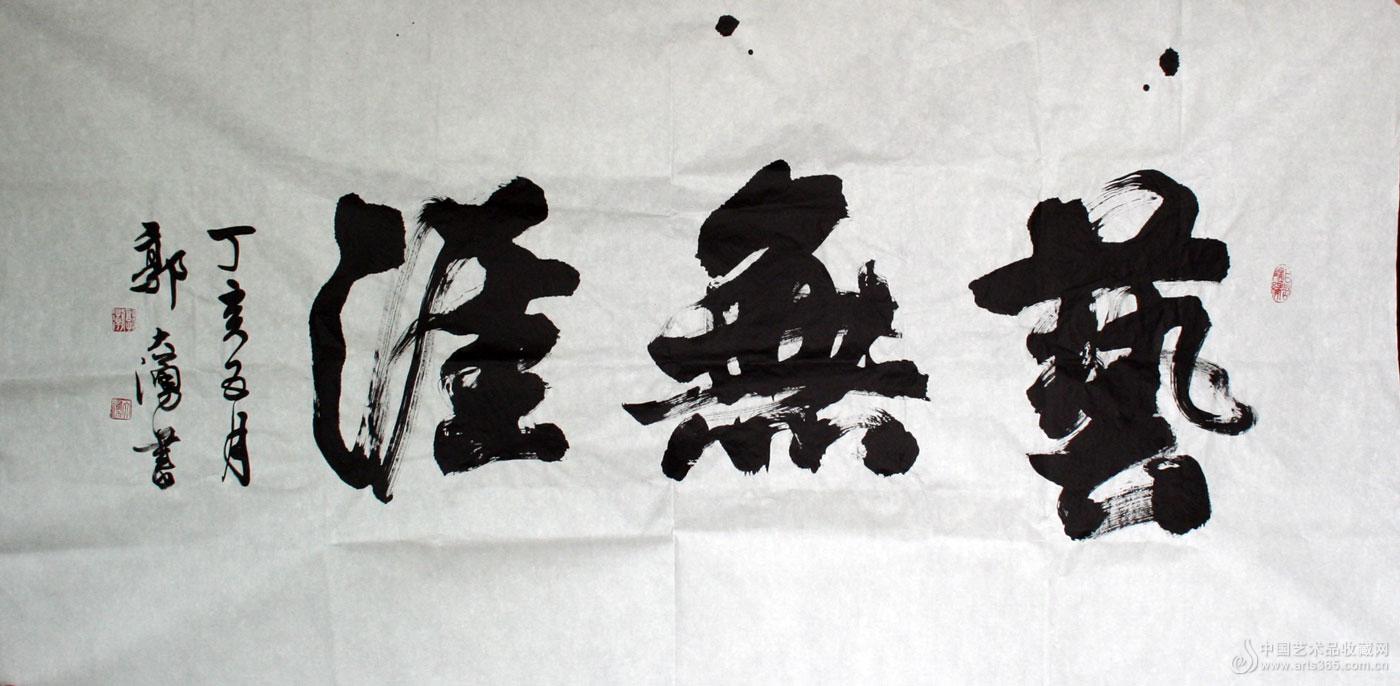 藝無涯
丁亥五月
郭大勇書
中国艺术品收藏网
www.arts365.com.cn